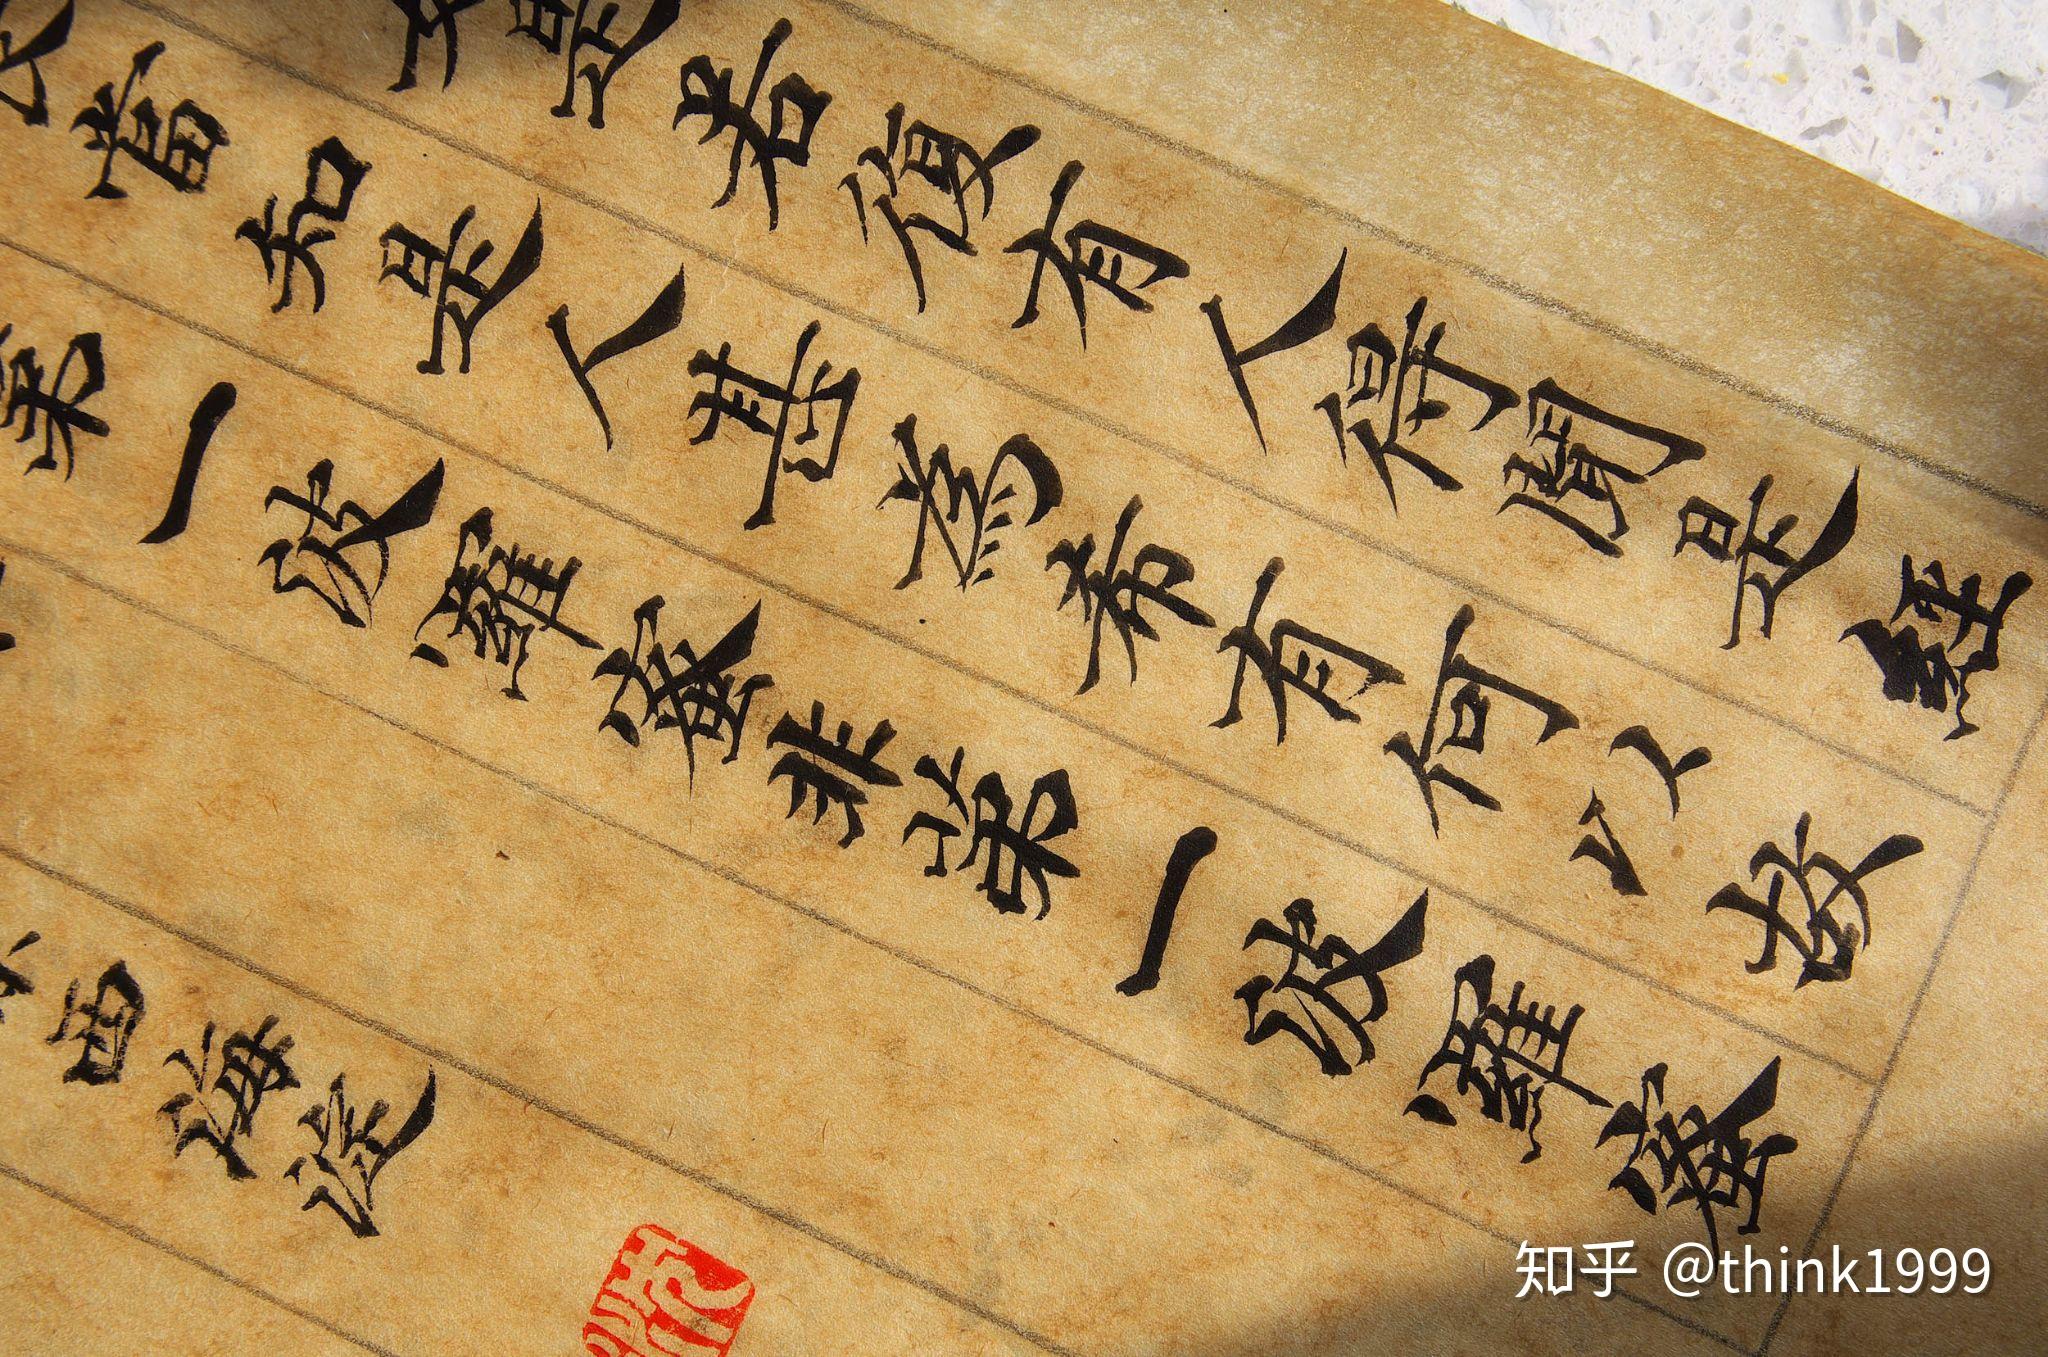 是若復有人得聞是經
當知是人甚為希有何以故
第一波羅蜜非第一波羅蜜
西海
知乎 @think1999